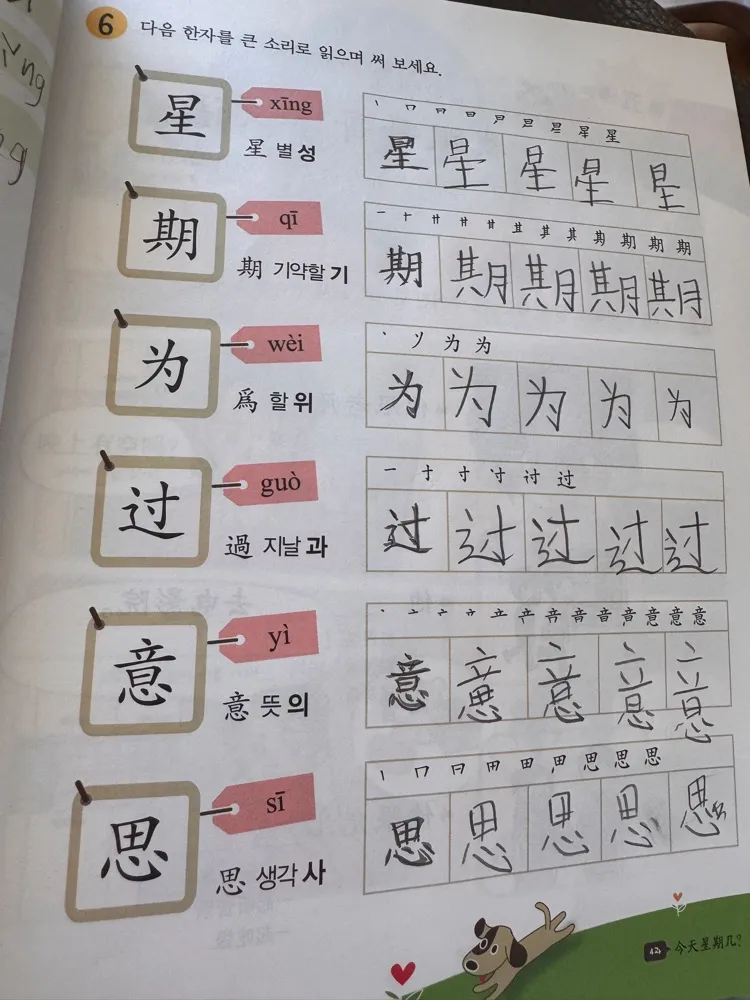 6 다음 한자를 큰 소리로 읽으며 써 보세요.
星 xīng
星 별 성
丨 口 日 日 尸 旦 旦 星 星
星 星 星 星 星
期 qī
期 기약할 기
一 十 廾 廿 甘 其 其 其 期 期 期 期
期 期 期 期 期
为 wèi
爲 할 위
丶 丷 为 为
为 为 为 为 为
过 guò
過 지날 과
一 寸 寸 过 过 过
过 过 过 过 过
意 yì
意 뜻 의
丶 亠 立 音 意 意 意
意 意 意 意 意
思 sī
思 생각 사
丨 冂 日 田 田 思 思 思 思
思 思 思 思 思
今天星期几?